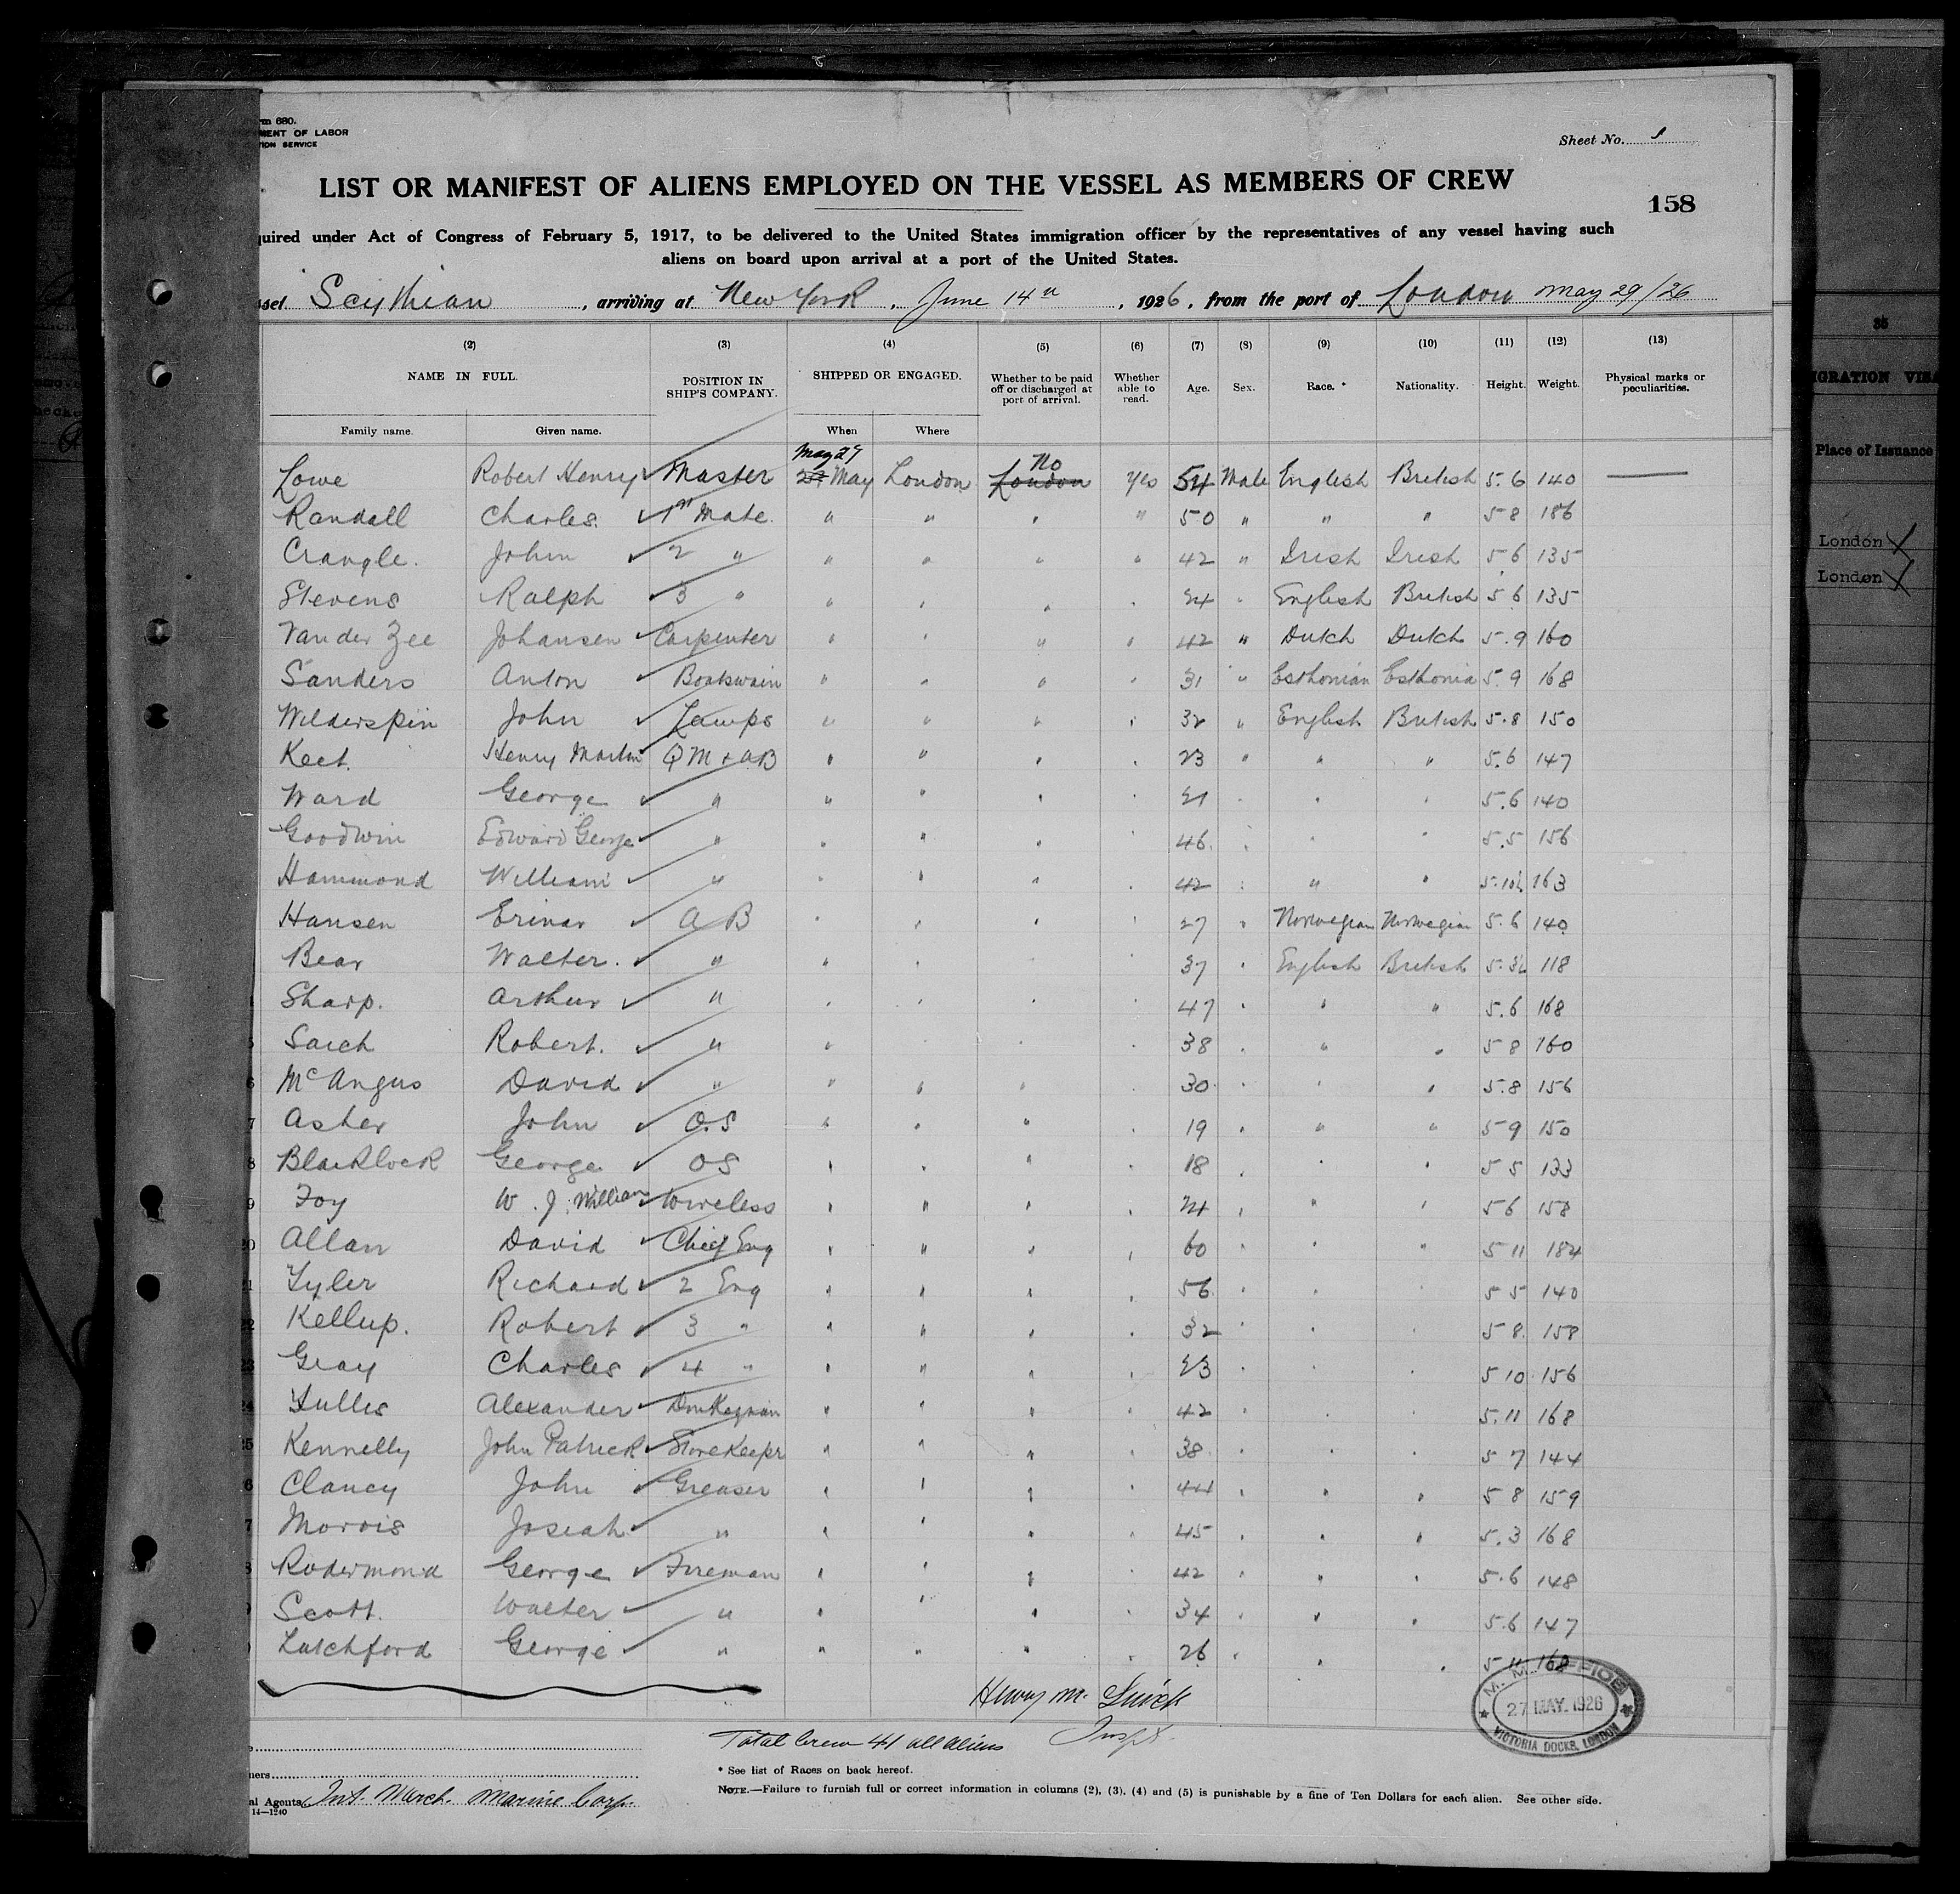 rm 680.
MENT OF LABOR
TION SERVICE
Sheet No. 1
LIST OR MANIFEST OF ALIENS EMPLOYED ON THE VESSEL AS MEMBERS OF CREW
158
quired under Act of Congress of February 5, 1917, to be delivered to the United States immigration officer by the representatives of any vessel having such
aliens on board upon arrival at a port of the United States.
ssel Scythian, arriving at New York, June 14th, 1926, from the port of London May 29/26
(2) (3) (4) (5) (6) (7) (8) (9) (10) (11) (12) (13)
NAME IN FULL. POSITION IN SHIP'S COMPANY. SHIPPED OR ENGAGED. Whether to be paid off or discharged at port of arrival. Whether able to read. Age. Sex. Race.* Nationality. Height. Weight. Physical marks or peculiarities.
Family name. Given name. When Where
May 27 No
Lowe Robert Henry Master May London London Yes 54 Male English British 5.6 140
Randall Charles 1st Mate " " " " 50 " " " 5 8 186
Crangle. John 2 " " " " " 42 " Irish Irish 5.6 135
Stevens Ralph 3 " " " " " 24 " English British 5 6 135
Van der Zee Johansen Carpenter " " " " 42 " Dutch Dutch 5.9 160
Sanders Anton Boatswain " " " " 31 " Esthonian Esthonia 5.9 168
Wilderspin John Lamps " " " " 32 " English British 5.8 150
Keet. Henry Martin QM + AB " " " " 23 " " " 5.6 147
Ward George " " " " " 21 " " " 5.6 140
Goodwin Edward George " " " " " 46 " " " 5.5 156
Hammond William " " " " " 42 " " " 5.10½ 163
Hansen Erinar AB " " " " 27 " Norwegian Norwegian 5.6 140
Bear Walter. " " " " " 37 " English British 5.3½ 118
Sharp. Arthur " " " " " 47 " " " 5.6 168
5 Saich Robert. " " " " " 38 " " " 5 8 160
6 McAngus David " " " " " 30 " " " 5.8 156
7 Asher John O.S " " " " 19 " " " 5 9 150
8 Blacklock George OS " " " " 18 " " " 5 5 133
9 Foy W. J. William Wireless " " " " 24 " " " 5 6 158
20 Allan David Chief Eng " " " " 60 " " " 5 11 184
21 Tyler Richard 2 Eng " " " " 56 " " " 5 5 140
22 Kellup. Robert 3 " " " " " 32 " " " 5 8 158
23 Gray Charles 4 " " " " " 23 " " " 5 10 156
24 Tulles Alexander Donkeyman " " " " 42 " " " 5.11 168
25 Kennelly John Patrick StoreKeepr " " " " 38 " " " 5 7 144
6 Clancy John Greaser " " " " 44 " " " 5 8 159
7 Morris Josiah " " " " " 45 " " " 5.3 168
8 Rodermond George Fireman " " " " 42 " " " 5.6 148
9 Scott. Walter " " " " " 34 " " " 5.6 147
Latchford George " " " " " 26 " " " 5 11 168
Henry M.
Inspt.
M. M. OFFICE
27 MAY. 1926
VICTORIA DOCKS, LONDON
Total Crew 41 all aliens
* See list of Races on back hereof.
ners
al Agents Int. Merch. Marine Corp.
14—1240
NOTE.—Failure to furnish full or correct information in columns (2), (3), (4) and (5) is punishable by a fine of Ten Dollars for each alien. See other side.
35
IGRATION VISA
Place of Issuance
London X
London X